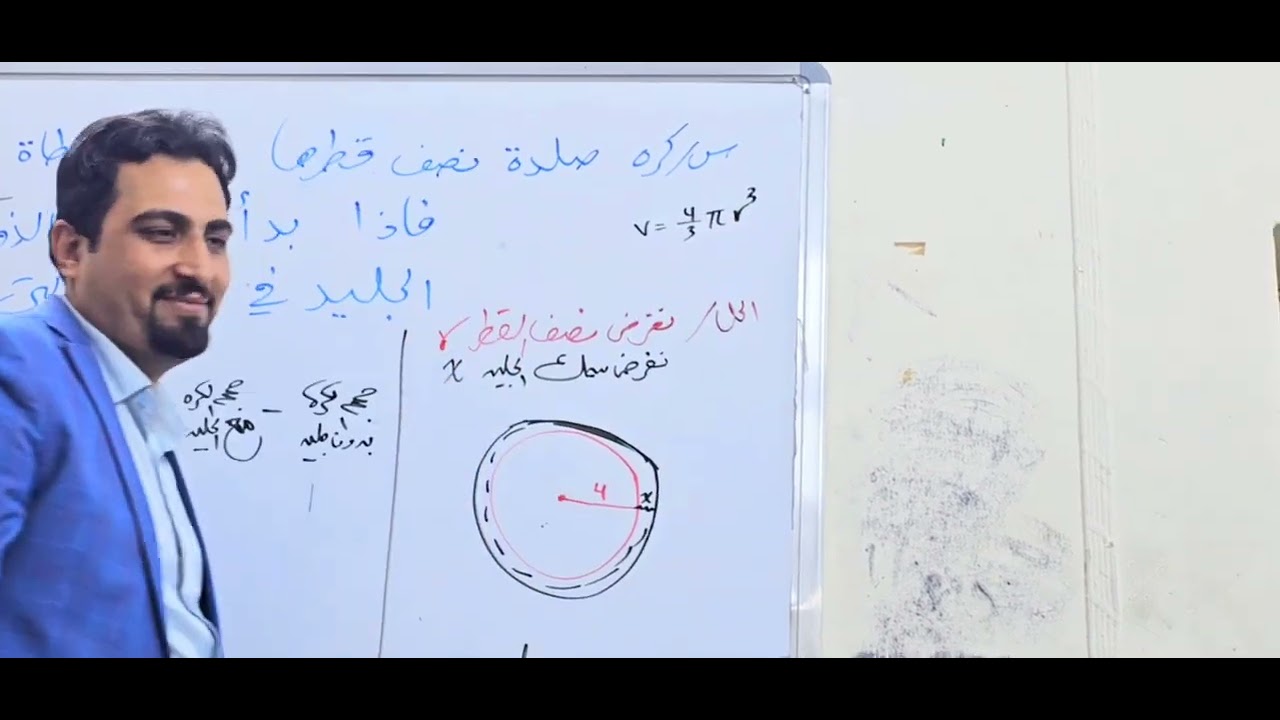 س/ كره صلدة نصف قطرها
فاذا بدأ
الجليد في
v = 4/3 π r³
الحل/ نفرض نصف القطر r
نفرض سمك الجليد x
حجم الكرة - حجم الكره
بدون جليد مع الجليد
4 x